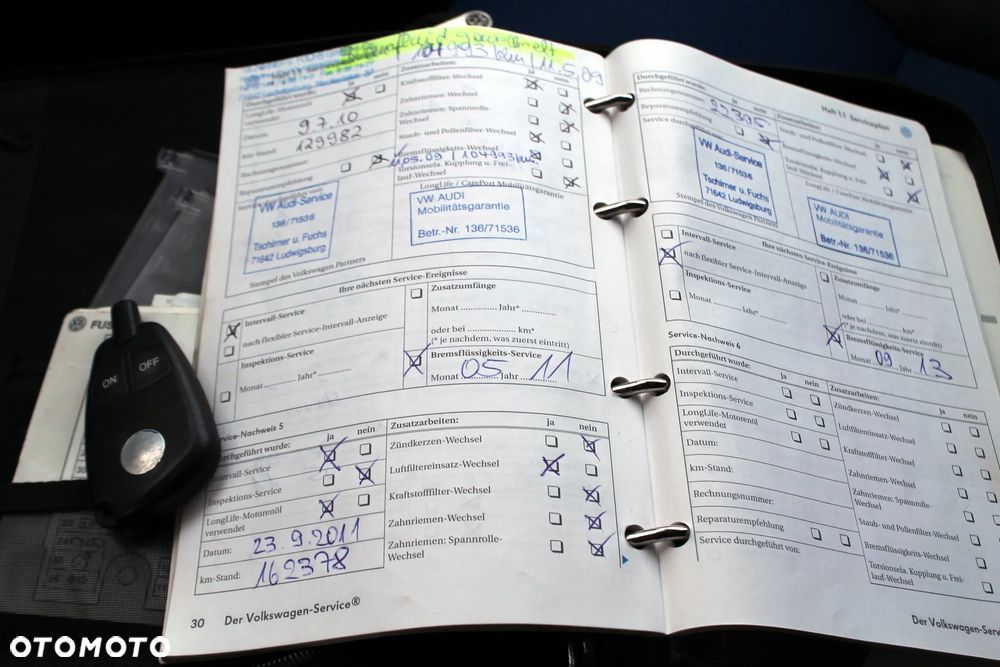 104993 km / 11.5.09
Durchgeführt wurde:
ja nein
LongLife-Motorenöl
verwendet
Datum: 9.7.10
km-Stand: 129982
Rechnungsnummer:
Reparaturempfehlung
VW Audi-Service
136/71536
Tschirner u. Fuchs
71642 Ludwigsburg
Stempel des Volkswagen Partners
Zusatzarbeiten: ja nein
Kraftstofffilter-Wechsel
Zahnriemen-Wechsel
Zahnriemen: Spannrolle-
Wechsel
Staub- und Pollenfilter-Wechsel
Bremsflüssigkeits-Wechsel
11.05.09 / 104993 km
Torsionsela. Kupplung u. Frei-
lauf-Wechsel
LongLife / CarePort Mobilitätsgarantie
VW AUDI
Mobilitätsgarantie
Betr.-Nr. 136/71536
Ihre nächsten Service-Ereignisse
Intervall-Service
nach flexibler Service-Intervall-Anzeige
Inspektions-Service
Monat ............ Jahr* ............
Zusatzumfänge
Monat ............ Jahr* ............
oder bei ............ km*
(* je nachdem, was zuerst eintritt)
Bremsflüssigkeits-Service
Monat 05 Jahr 11
Service-Nachweis 5
Durchgeführt wurde: ja nein
Intervall-Service
Inspektions-Service
LongLife-Motorenöl
verwendet
Datum: 23.9.2011
km-Stand: 162378
Zusatzarbeiten: ja nein
Zündkerzen-Wechsel
Luftfiltereinsatz-Wechsel
Kraftstofffilter-Wechsel
Zahnriemen-Wechsel
Zahnriemen: Spannrolle-
Wechsel
30 Der Volkswagen-Service®
Heft 1.1 Serviceplan
Durchgeführt wurde: ja nein
Rechnungsnummer: 22395
Reparaturempfehlung
Service durchgeführt von:
VW Audi-Service
136/71536
Tschirner u. Fuchs
71642 Ludwigsburg
Stempel des Volkswagen Partners
Zusatzarbeiten: ja nein
Staub- und Pollenfilter-Wechsel
Bremsflüssigkeits-Wechsel
Torsionsela. Kupplung u. Frei-
lauf-Wechsel
LongLife / CarePort Mobilitätsgarantie
VW AUDI
Mobilitätsgarantie
Betr.-Nr. 136/71536
Ihre nächsten Service-Ereignisse
Intervall-Service
nach flexibler Service-Intervall-Anzeige
Inspektions-Service
Monat ............ Jahr* ............
Zusatzumfänge
Monat ............ Jahr* ............
oder bei ............ km*
(* je nachdem, was zuerst eintritt)
Bremsflüssigkeits-Service
Monat 09 Jahr 13
Service-Nachweis 6
Durchgeführt wurde: ja nein
Intervall-Service
Inspektions-Service
LongLife-Motorenöl
verwendet
Datum:
km-Stand:
Rechnungsnummer:
Reparaturempfehlung
Service durchgeführt von:
Zusatzarbeiten: ja nein
Zündkerzen-Wechsel
Luftfiltereinsatz-Wechsel
Kraftstofffilter-Wechsel
Zahnriemen-Wechsel
Zahnriemen: Spannrolle-
Wechsel
Staub- und Pollenfilter-Wechsel
Bremsflüssigkeits-Wechsel
Torsionsela. Kupplung u. Frei-
lauf-Wechsel
Der Volkswagen-Serv
ON OFF
OTOMOTO